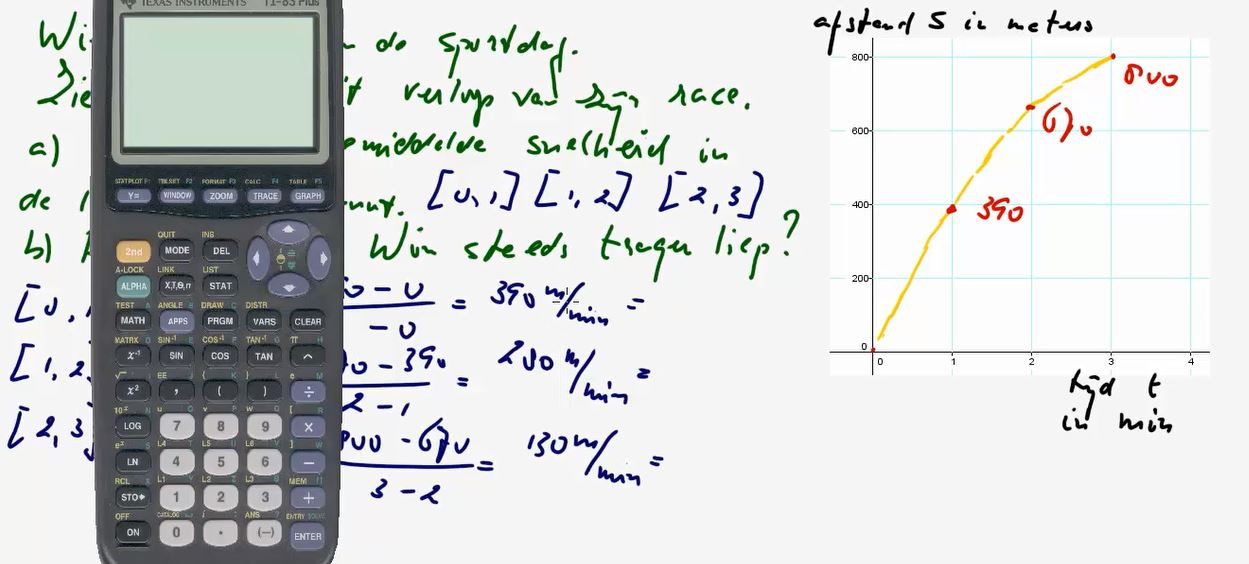 TEXAS INSTRUMENTS TI-83 Plus
Wi do sportdag.
Zie t verloop van zijn race.
a) emiddelde snelheid in
de nuut. [0,1] [1,2] [2,3]
b) Win steeds trager liep?
[0, 0 - 0 / - 0 = 390 m/min =
[1, 2 70 - 390 / 2 - 1 = 280 m/min =
[2, 3 800 - 670 / 3 - 2 = 130 m/min =
STATPLOT F1 TBLSET F2 FORMAT F3 CALC F4 TABLE F5
Y= WINDOW ZOOM TRACE GRAPH
QUIT INS
2nd MODE DEL
A-LOCK LINK LIST
ALPHA X,T,Θ,n STAT
TEST A ANGLE B DRAW C DISTR
MATH APPS PRGM VARS CLEAR
MATRX D SIN⁻¹ E COS⁻¹ F TAN⁻¹ G π H
x⁻¹ SIN COS TAN ^
√ I EE J { K } L e M
x² , ( ) ÷
10ˣ N u O v P w Q [ R
LOG 7 8 9 ×
eˣ S L4 T L5 U L6 V ] W
LN 4 5 6 −
RCL X L1 Y L2 Z L3 θ MEM "
STO▸ 1 2 3 +
OFF CATALOG i : ANS ? ENTRY SOLVE
ON 0 . (−) ENTER
afstand S in meters
800
600
400
200
0
0 1 2 3 4
800
670
390
tijd t
in min